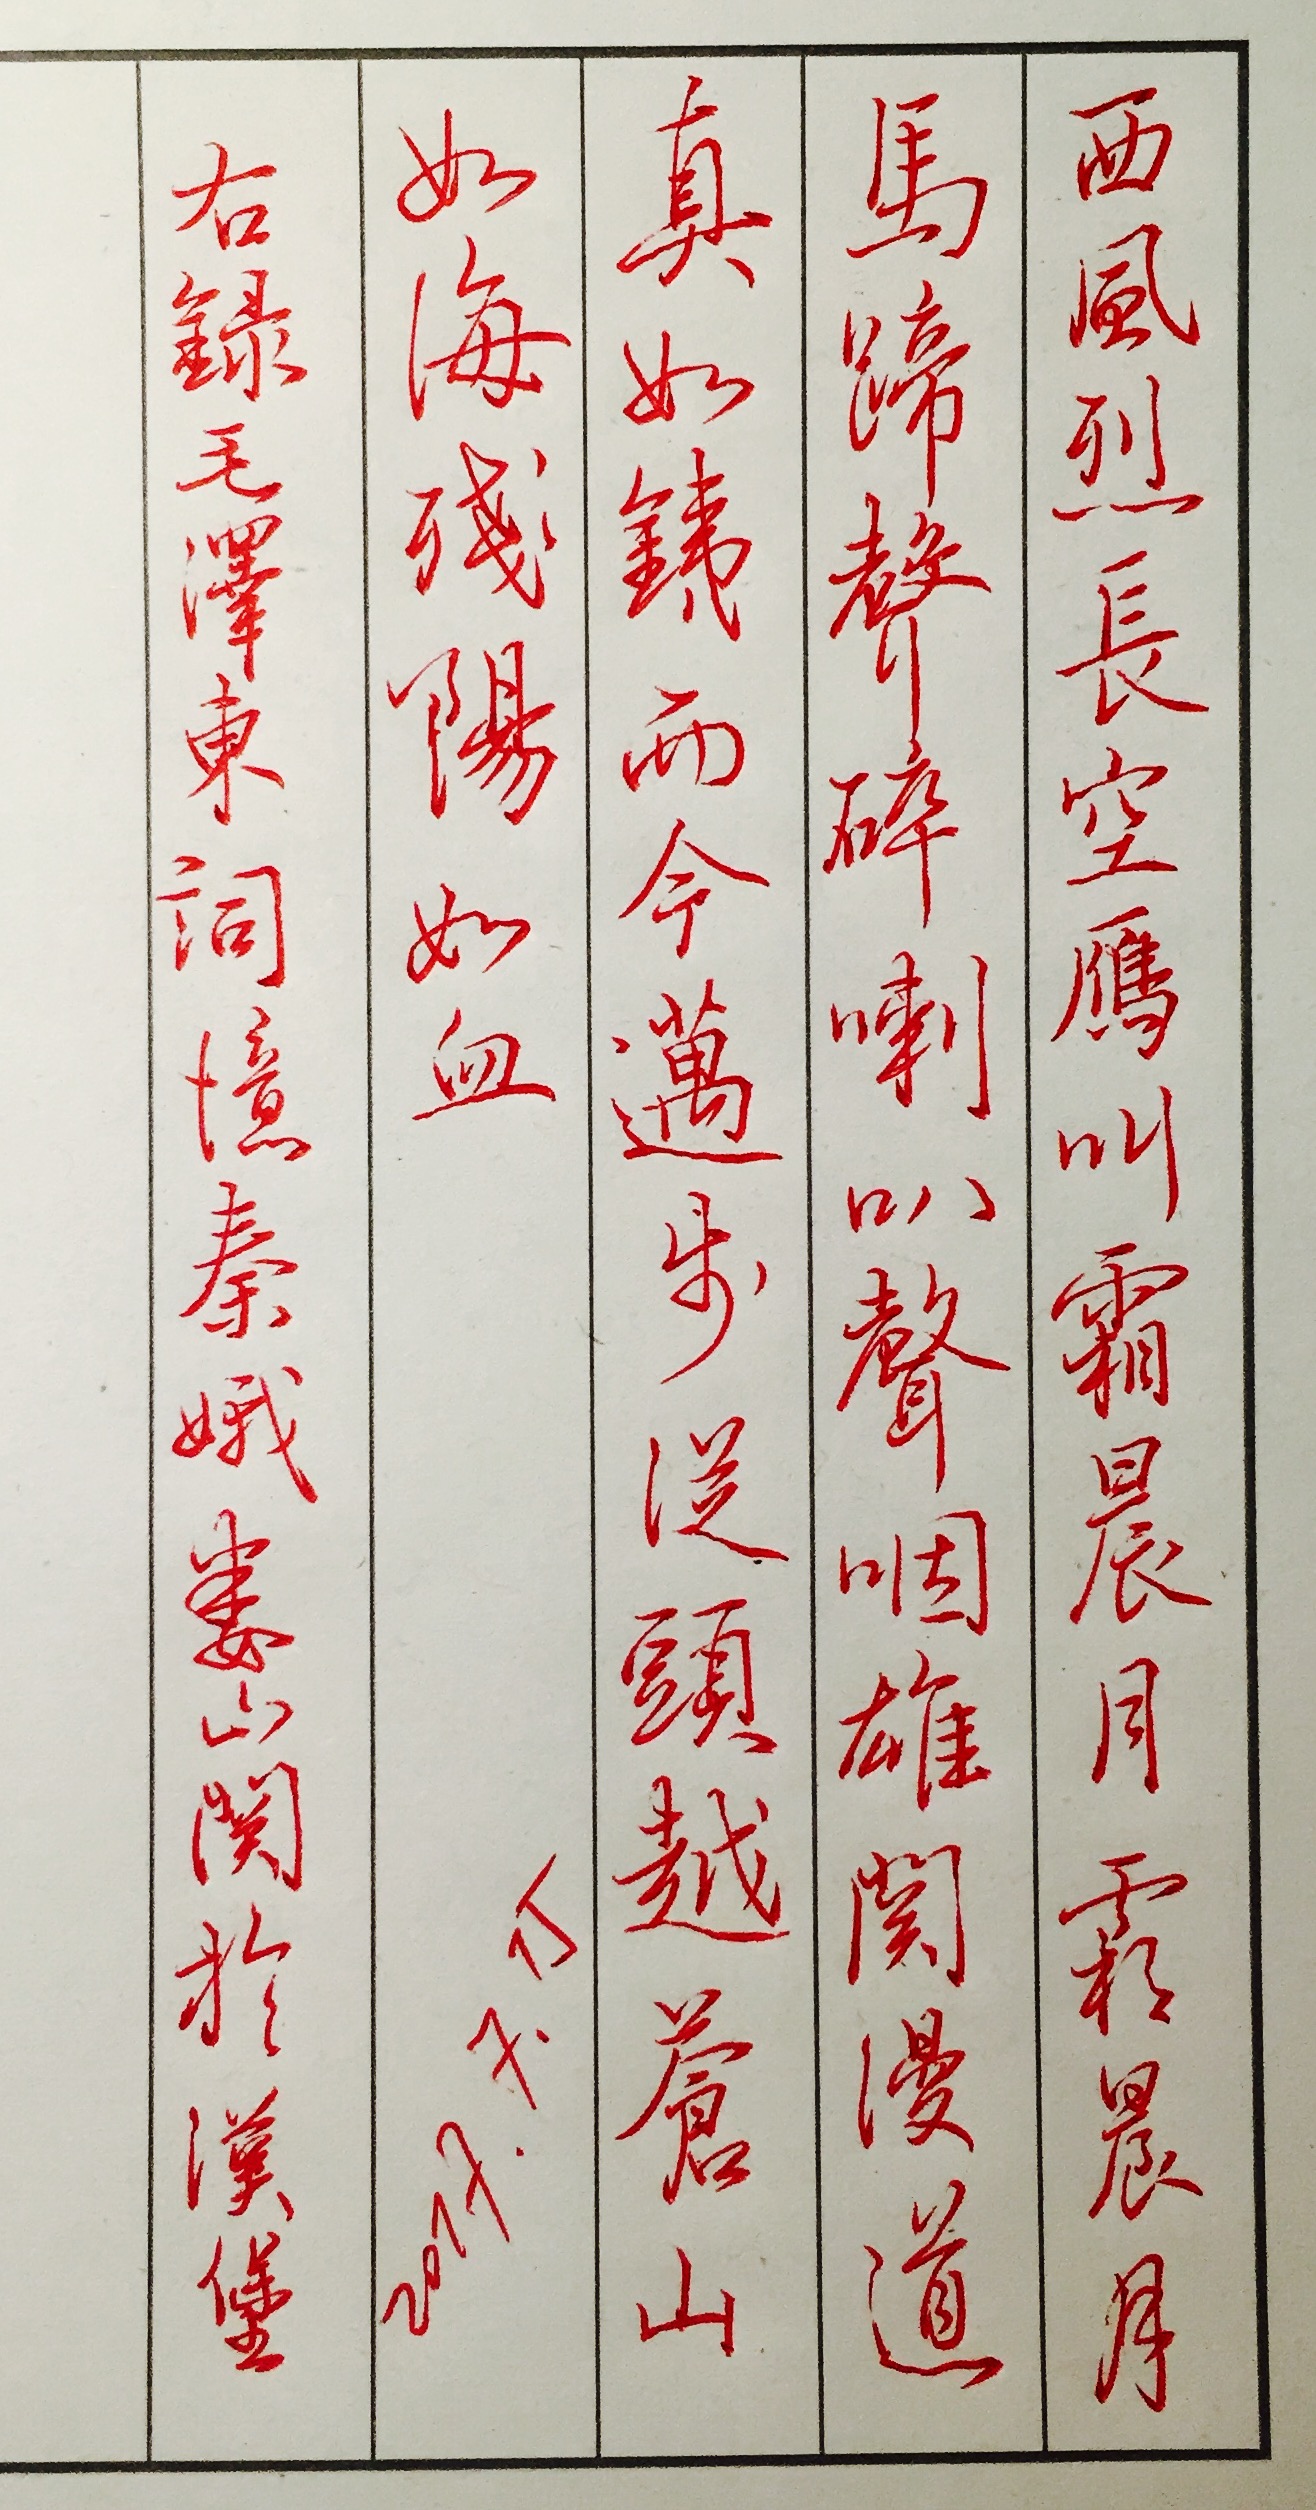 西風烈長空鴈叫霜晨月霜晨月
馬蹄聲碎喇叭聲咽雄関漫道
真如銕而今邁步從頭越蒼山
如海残陽如血
2017.7.
右録毛澤東詞憶秦娥婁山関於漢堡